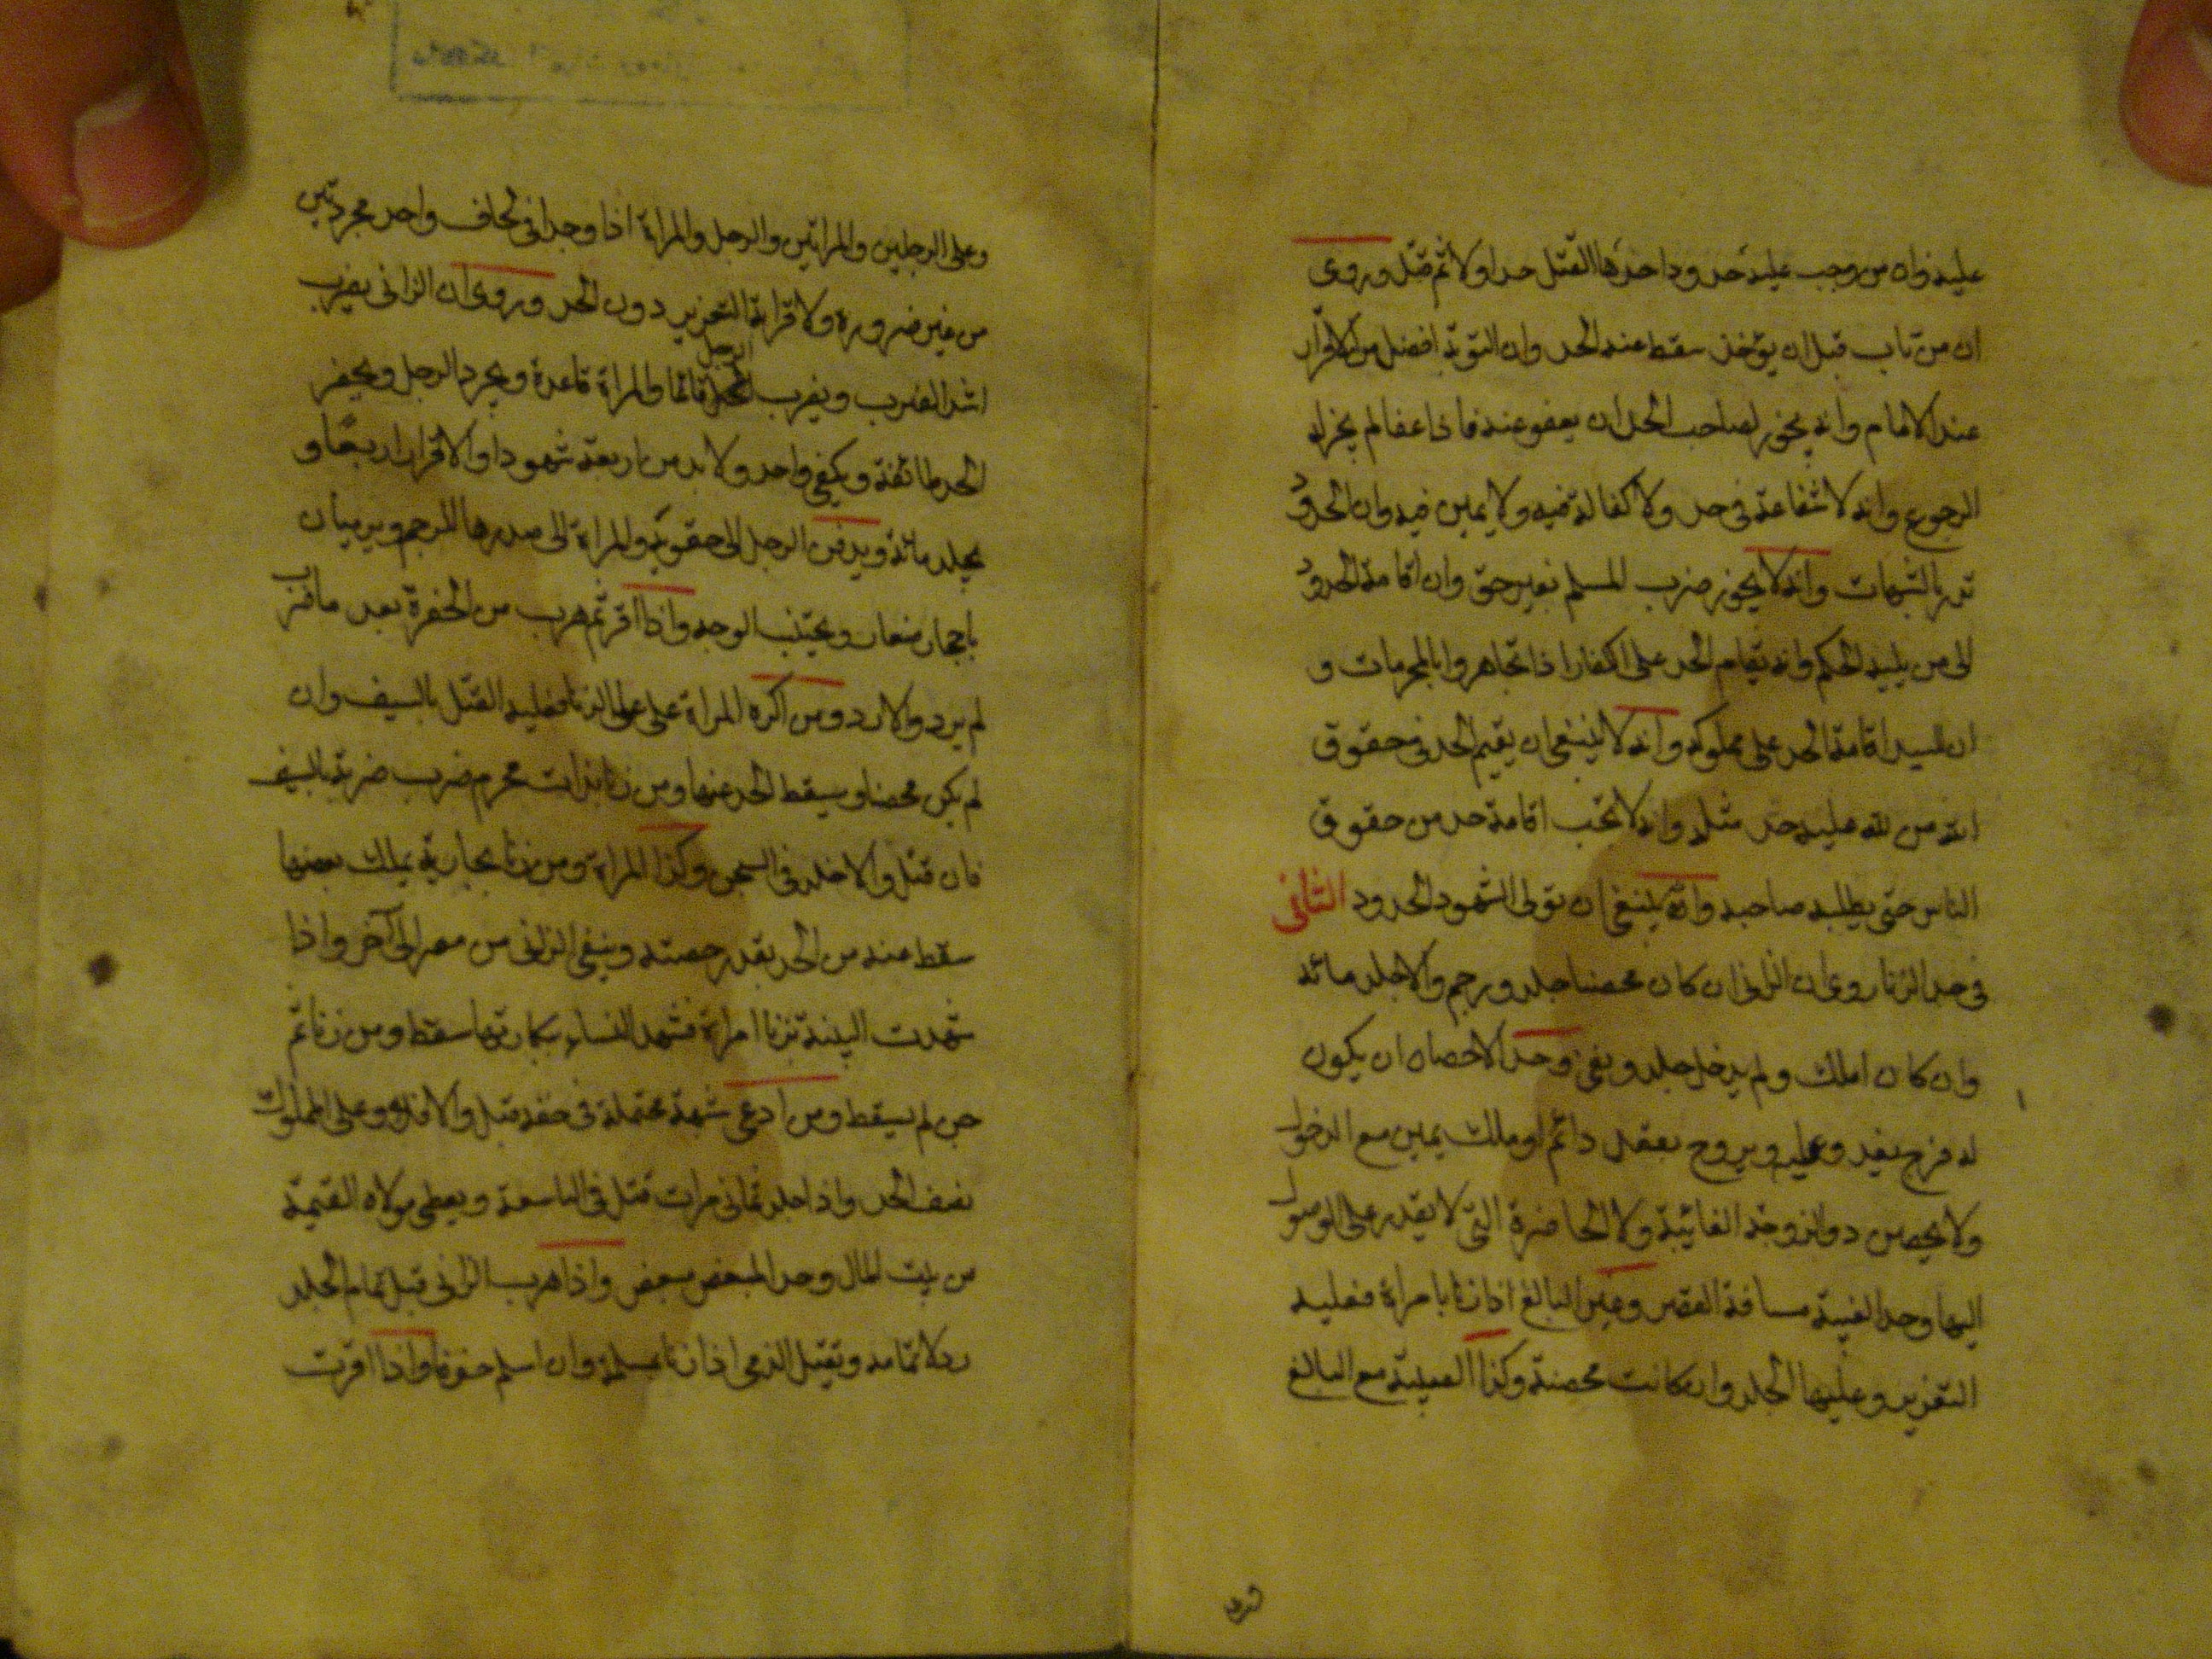 عليه وان من وجب عليه حدود احدها القتل حد اولا ثم قتل وروى
ان من تاب قبل ان يؤخذ سقط عنه الحد وان التوبة افضل من الاقرار
عند الامام وانه يجوز لصاحب الحد ان يعفو عنه فاذا عفا لم يجز له
الرجوع وانه لا شفاعة فى حد ولا كفالة فيه ولا يمين فيه وان الحدود
تدرء بالشبهات وانه لا يجوز ضرب المسلم بغير حق وان اقامة الحدود
الى من يليه الحكم وانه يقام الحد على الكفار اذا تجاهروا بالمحرمات و
ان للسيد اقامة الحد على مملوكه وانه لا ينبغى ان يقيم الحد فى حقوق
الله من لله عليه حد مثله وانه لا تجب اقامة حد من حقوق
الناس حتى يطلبه صاحبه وانه ينبغى ان تولى الشهود الحدود الثانى
فى حد الزنا روى ان الزانى ان كان محصنا جلد ورجم والا جلد مائة
وان كان املك ولم يدخل جلد ونفى وحد الاحصان ان يكون
له فرج يغدو عليه ويروح بعقد دائم او ملك يمين مع الدخول
ولا يحصن دو الزوجة الغائبة ولا الحاضرة التى لا يقدر على الوصول
اليها وحد الغيبة مسافة القصر وغير البالغ اذا زنا بامراة فعليه
التعزير وعليها الجلد وان كانت محصنة وكذا الصبية مع البالغ
وعلى
وعلى الرجلين والمراتين والرجل والمراة اذا وجدا فى لحاف واحد مجردين
من غير ضرورة ولا قرابة التعزير دون الحد وروى ان الزانى يضرب
اشد الضرب ويضرب الرجل قائما والمراة قاعدة ويجرد الرجل ويحضر
الحد طائفة ويكفى واحد ولا بد من اربعة شهود او الاقرار اربعا و
يجلد مائة ويدفن الرجل الى حقويه والمراة الى صدرها للرجم ويرميان
باحجار صغار ويجتنب الوجه واذا اقر ثم هرب من الحفرة بعد ما ضرب
لم يرد والا رد ومن اكره المراة على على الزنا فعليه القتل بالسيف وان
لم يكن محصنا ويسقط الحد عنها ومن زنا بذات محرم ضرب ضربة بالسيف
فان قتل والا خلد فى السجن وكذا المراة ومن زنا بجارية يملك بعضها
سقط عنه من الحد بقدر حصته وينفى الزانى من مصر الى آخر واذا
شهدت البينة بزنا امراة فشهد النساء ببكارتها سقط ومن زنا ثم
جن لم يسقط ومن ادعى شبهة محتملة فى حقه قبل والا فلا وعلى المملوك
نصف الحد واذا جلد ثمانى مرات قتل فى التاسعة ويعطى مولاه القيمة
من بيت المال وحد المبعض مبعض واذا هرب الزانى قبل تمام الجلد
رد لاتمامه ويقتل الذمى اذا زنا بمسلمة وان اسلم خوفا واذا اقرت